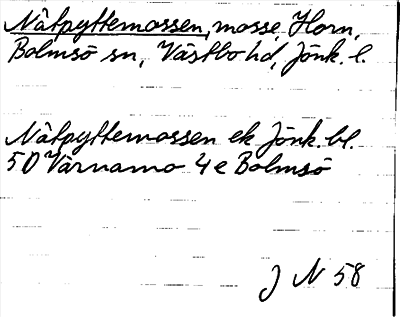 Nätpyttemossen, mosse, Horn,
Bolmsö sn, Västbo hd, Jönk. l.
Nätpyttemossen ek Jönk. bl.
5D Värnamo 4e Bolmsö
J N 58